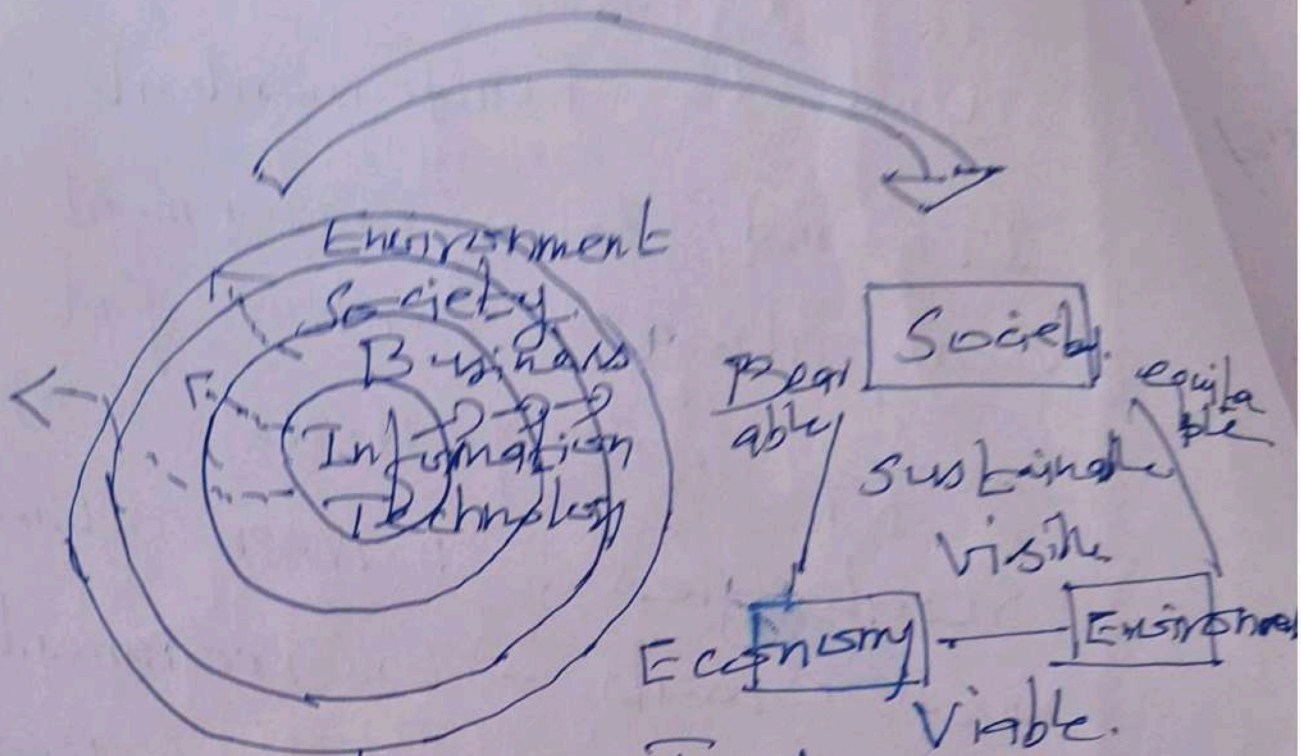 Environment
Society
Business
Information
Technology
Society
Bear
able
equita
ble
Sustainable
Visible
Economy
Environment
Viable.